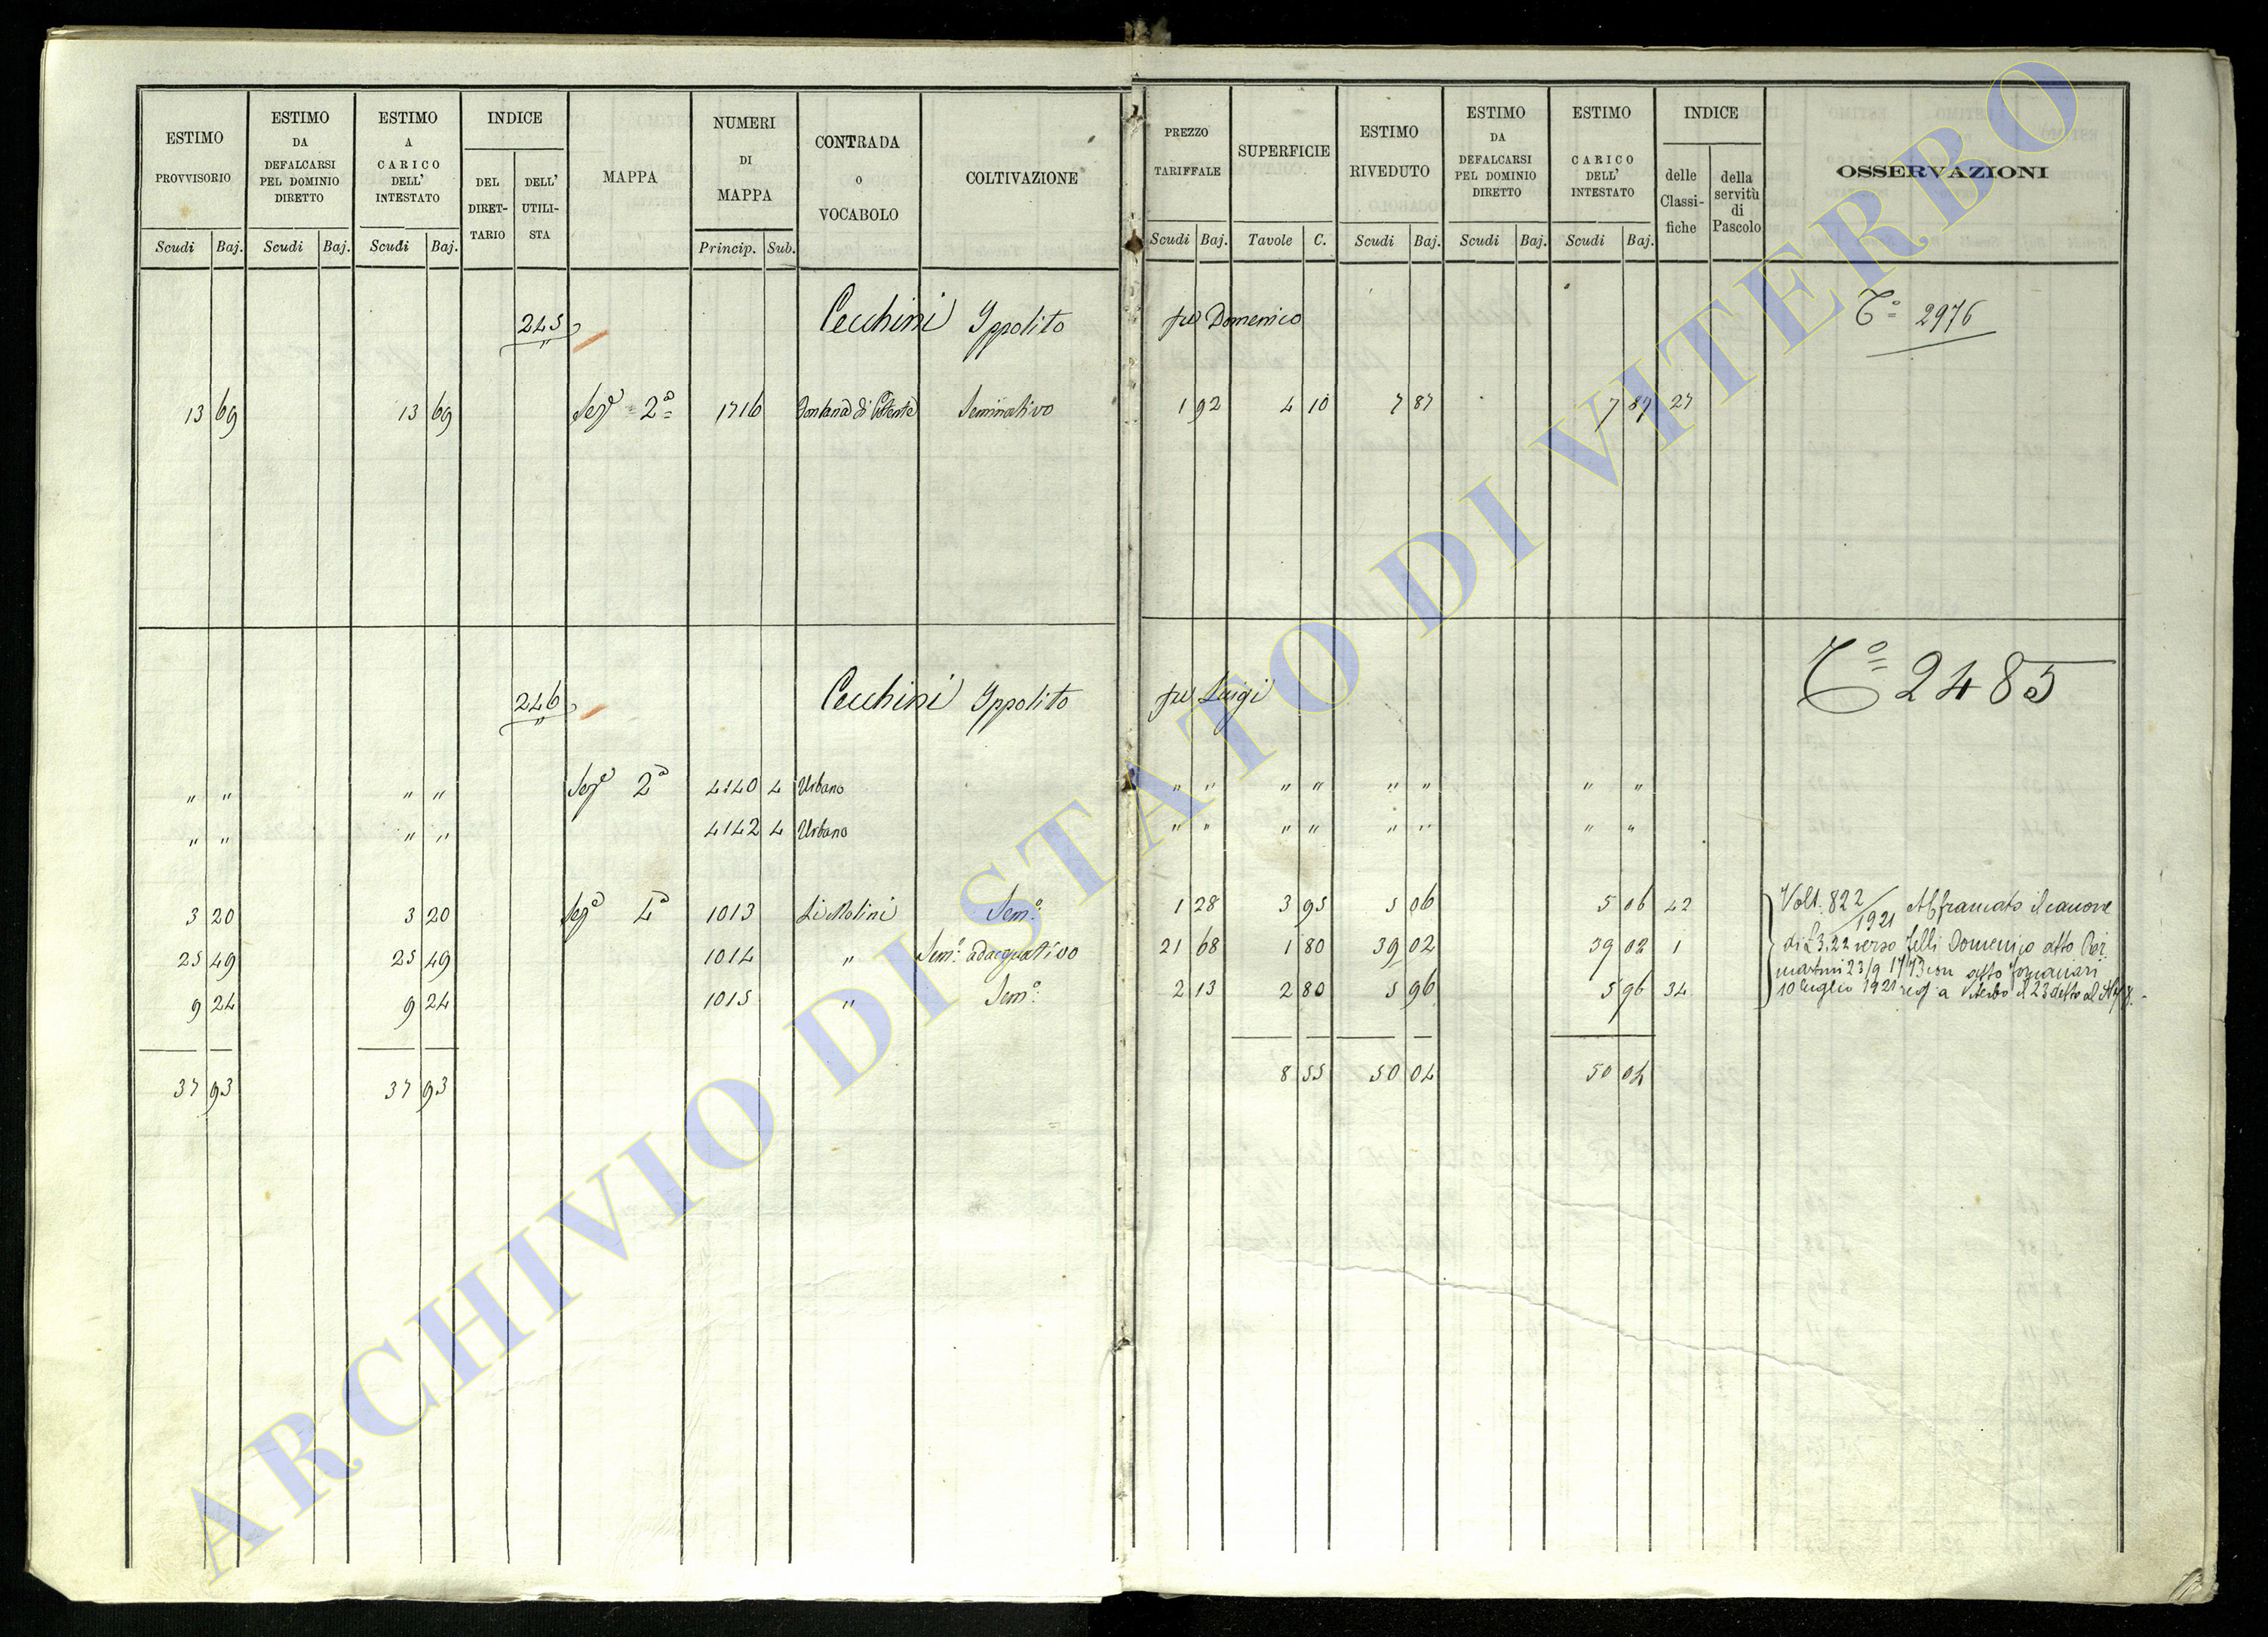 ESTIMO PROVVISORIO
ESTIMO DA DEFALCARSI PEL DOMINIO DIRETTO
ESTIMO A CARICO DELL' INTESTATO
INDICE
DEL DIRET-TARIO
DELL' UTILI-STA
MAPPA
NUMERI DI MAPPA
CONTRADA o VOCABOLO
COLTIVAZIONE
PREZZO TARIFFALE
SUPERFICIE
ESTIMO RIVEDUTO
ESTIMO DA DEFALCARSI PEL DOMINIO DIRETTO
ESTIMO A CARICO DELL' INTESTATO
INDICE
delle Classi-fiche
della servitù di Pascolo
OSSERVAZIONI
Scudi Baj. Scudi Baj. Scudi Baj. Princip. Sub. Scudi Baj. Tavole C. Scudi Baj. Scudi Baj. Scudi Baj.
245 Cecchini Ippolito fu Domenico Tº 2976
13 69 13 69 Sezª 2ª 1716 Fontana di Seminativo 1 92 4 10 7 87 7 87 27
246 Cecchini Ippolito fu Luigi Tº 2485
" " " " Sezª 2ª 4140 4 Urbano " " " " " " " "
" " " " 4142 4 Urbano " " " " " " " "
3 20 3 20 Sezª 4ª 1013 Li Molini Semº 1 28 3 95 5 06 5 06 42
25 49 25 49 1014 " Semº adacquativo 21 68 1 80 39 02 39 02 1
9 24 9 24 1015 " Semº 2 13 2 80 5 96 5 96 34
Volt. 822/1921 Affrancato il canone
di £ 3.22 verso Felli Domenico atto
23/9 con atto
10 luglio 1921 reg a Viterbo il 23 detto al Nº
37 93 37 93 8 55 50 04 50 04
ARCHIVIO DI STATO DI VITERBO